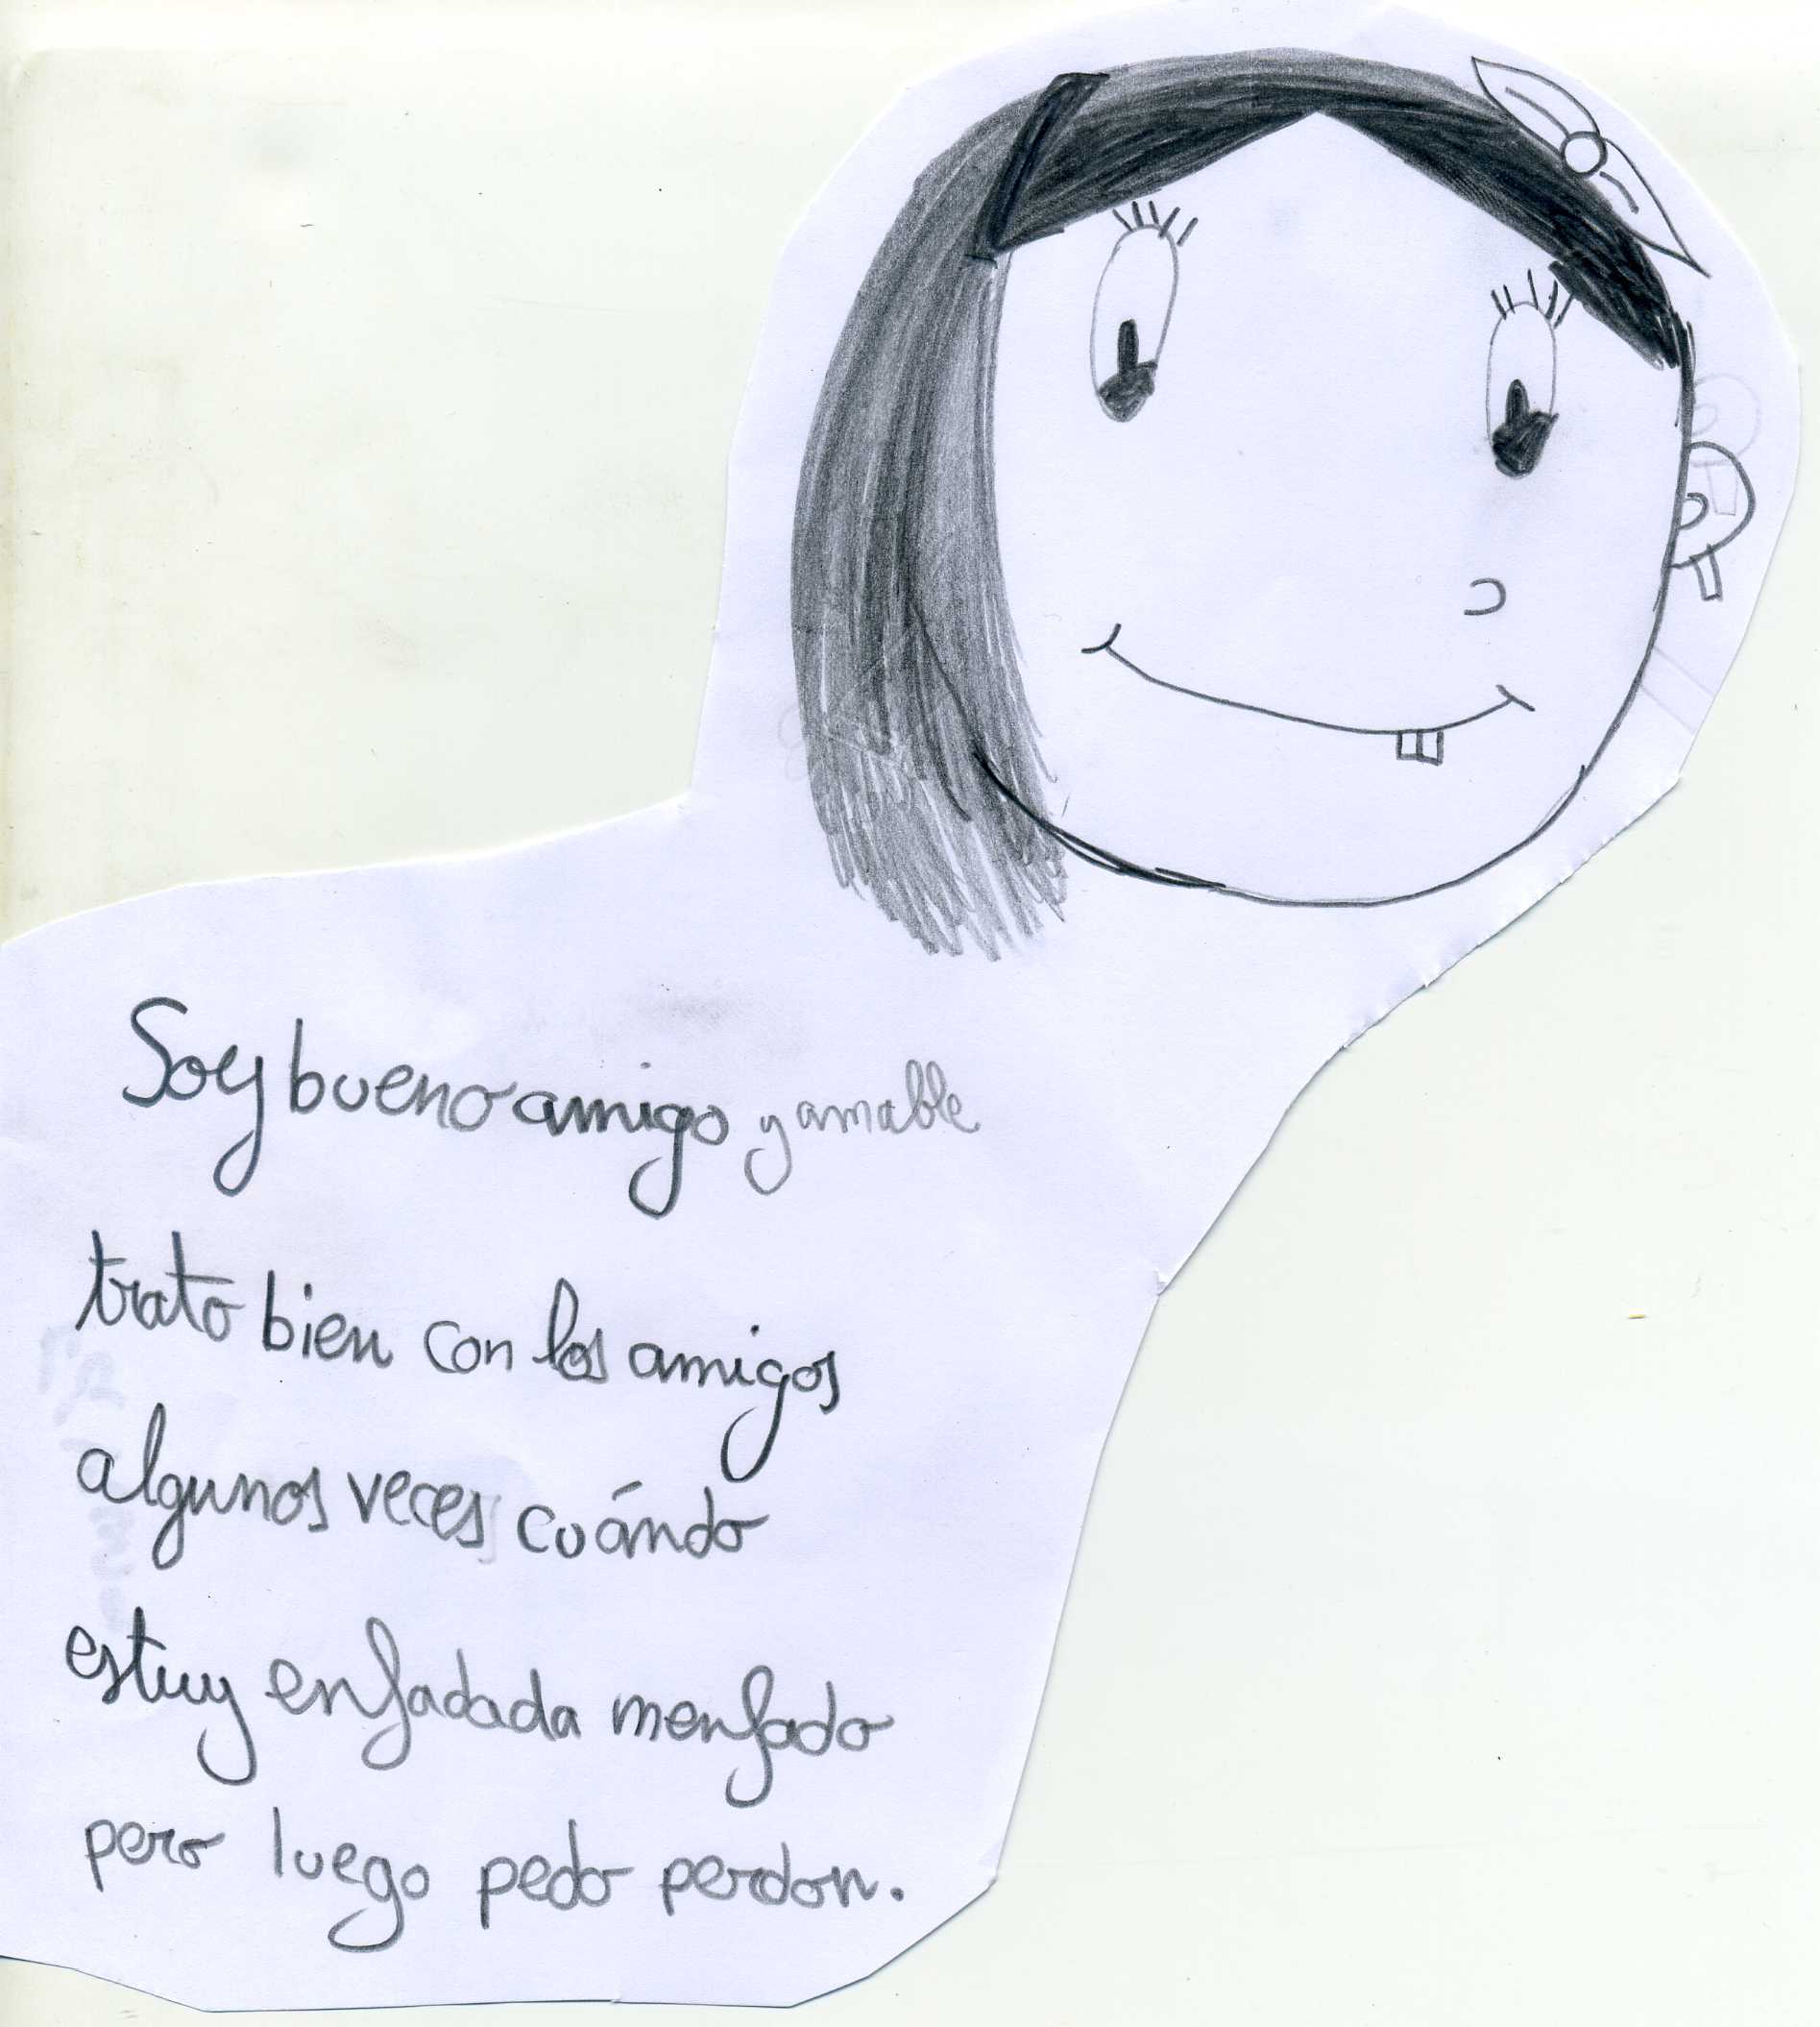 Soy bueno amigo y amable
trato bien con los amigos
algunos veces cuándo
estuy enfadada menfado
pero luego pedo perdon.